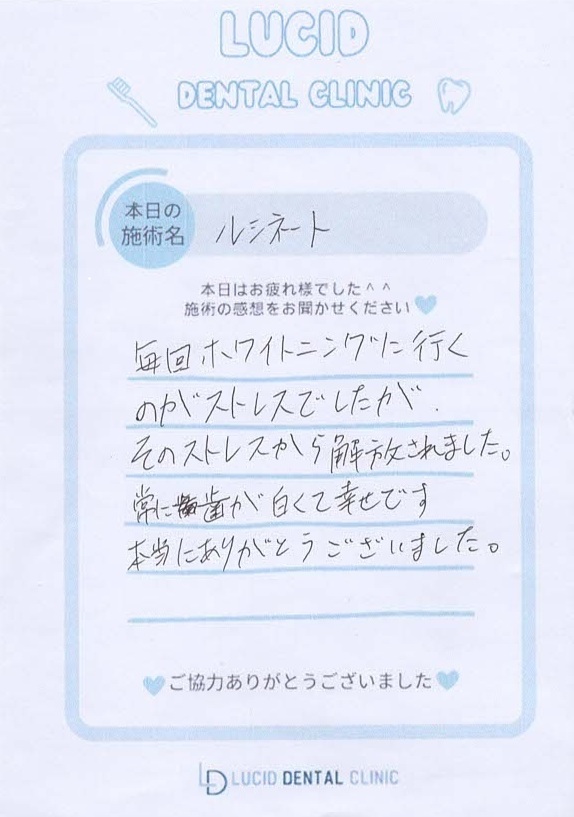 LUCID
DENTAL CLINIC
本日の
施術名
ルシネート
本日はお疲れ様でした^ ^
施術の感想をお聞かせください
毎回ホワイトニングに行く
のがストレスでしたが、
そのストレスから解放されました。
常に歯が白くて幸せです
本当にありがとうございました。
ご協力ありがとうございました
LD LUCID DENTAL CLINIC